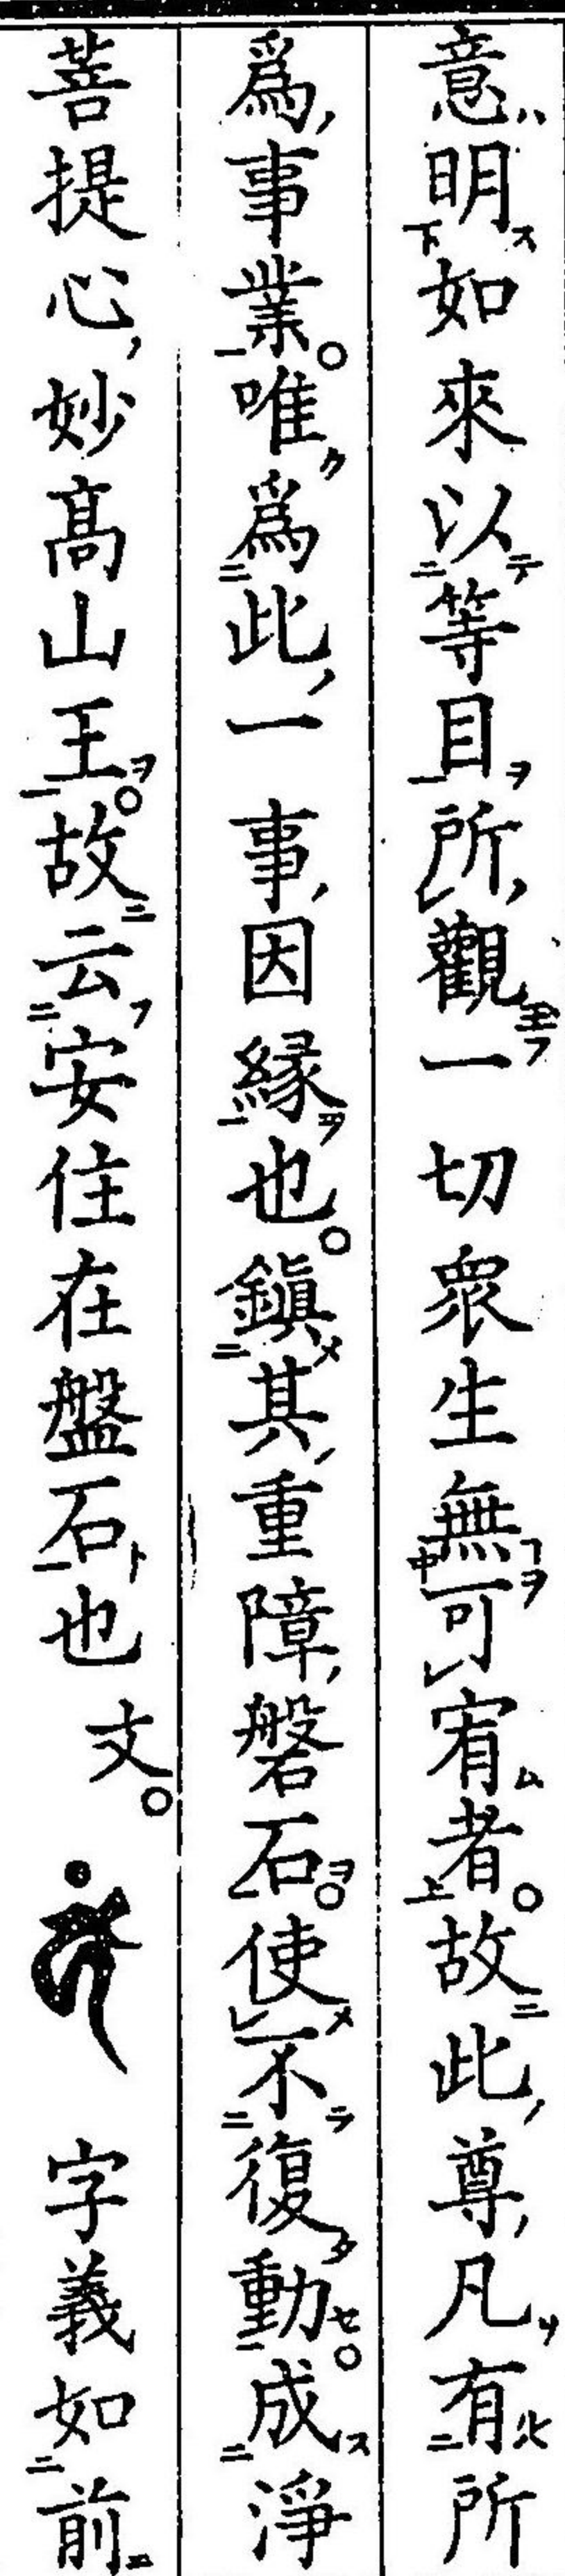 意明如來以等目所觀一切衆生無可宥者。故此尊凡有所
爲事業。唯爲此一事因緣也。鎭其重障磐石。使不復動。成淨
菩提心妙高山王。故云安住在盤石也文。 字義如前